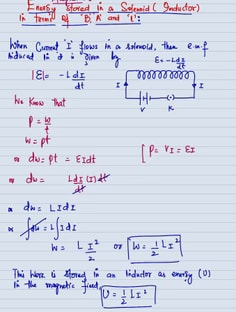 Energy stored in a Solenoid (Inductor)
In terms of 'B', 'A' and 'l':
When Current 'I' flows in a solenoid, then e.m.f
induced in it is given by
ε = -L dI/dt
|ε| = -L dI/dt
I
I
V
K
We Know that
P = W/t
W = pt
[ P = VI = εI
⇒ dw = pt = εIdt
⇒ dw = L dI/dt (I) dt
⇒ dw = L I dI
⇒ ∫dw = L∫I dI
W = L I²/2 or W = 1/2 L I²
This work is stored in an inductor as energy (U)
in the magnetic field
U = 1/2 L I²